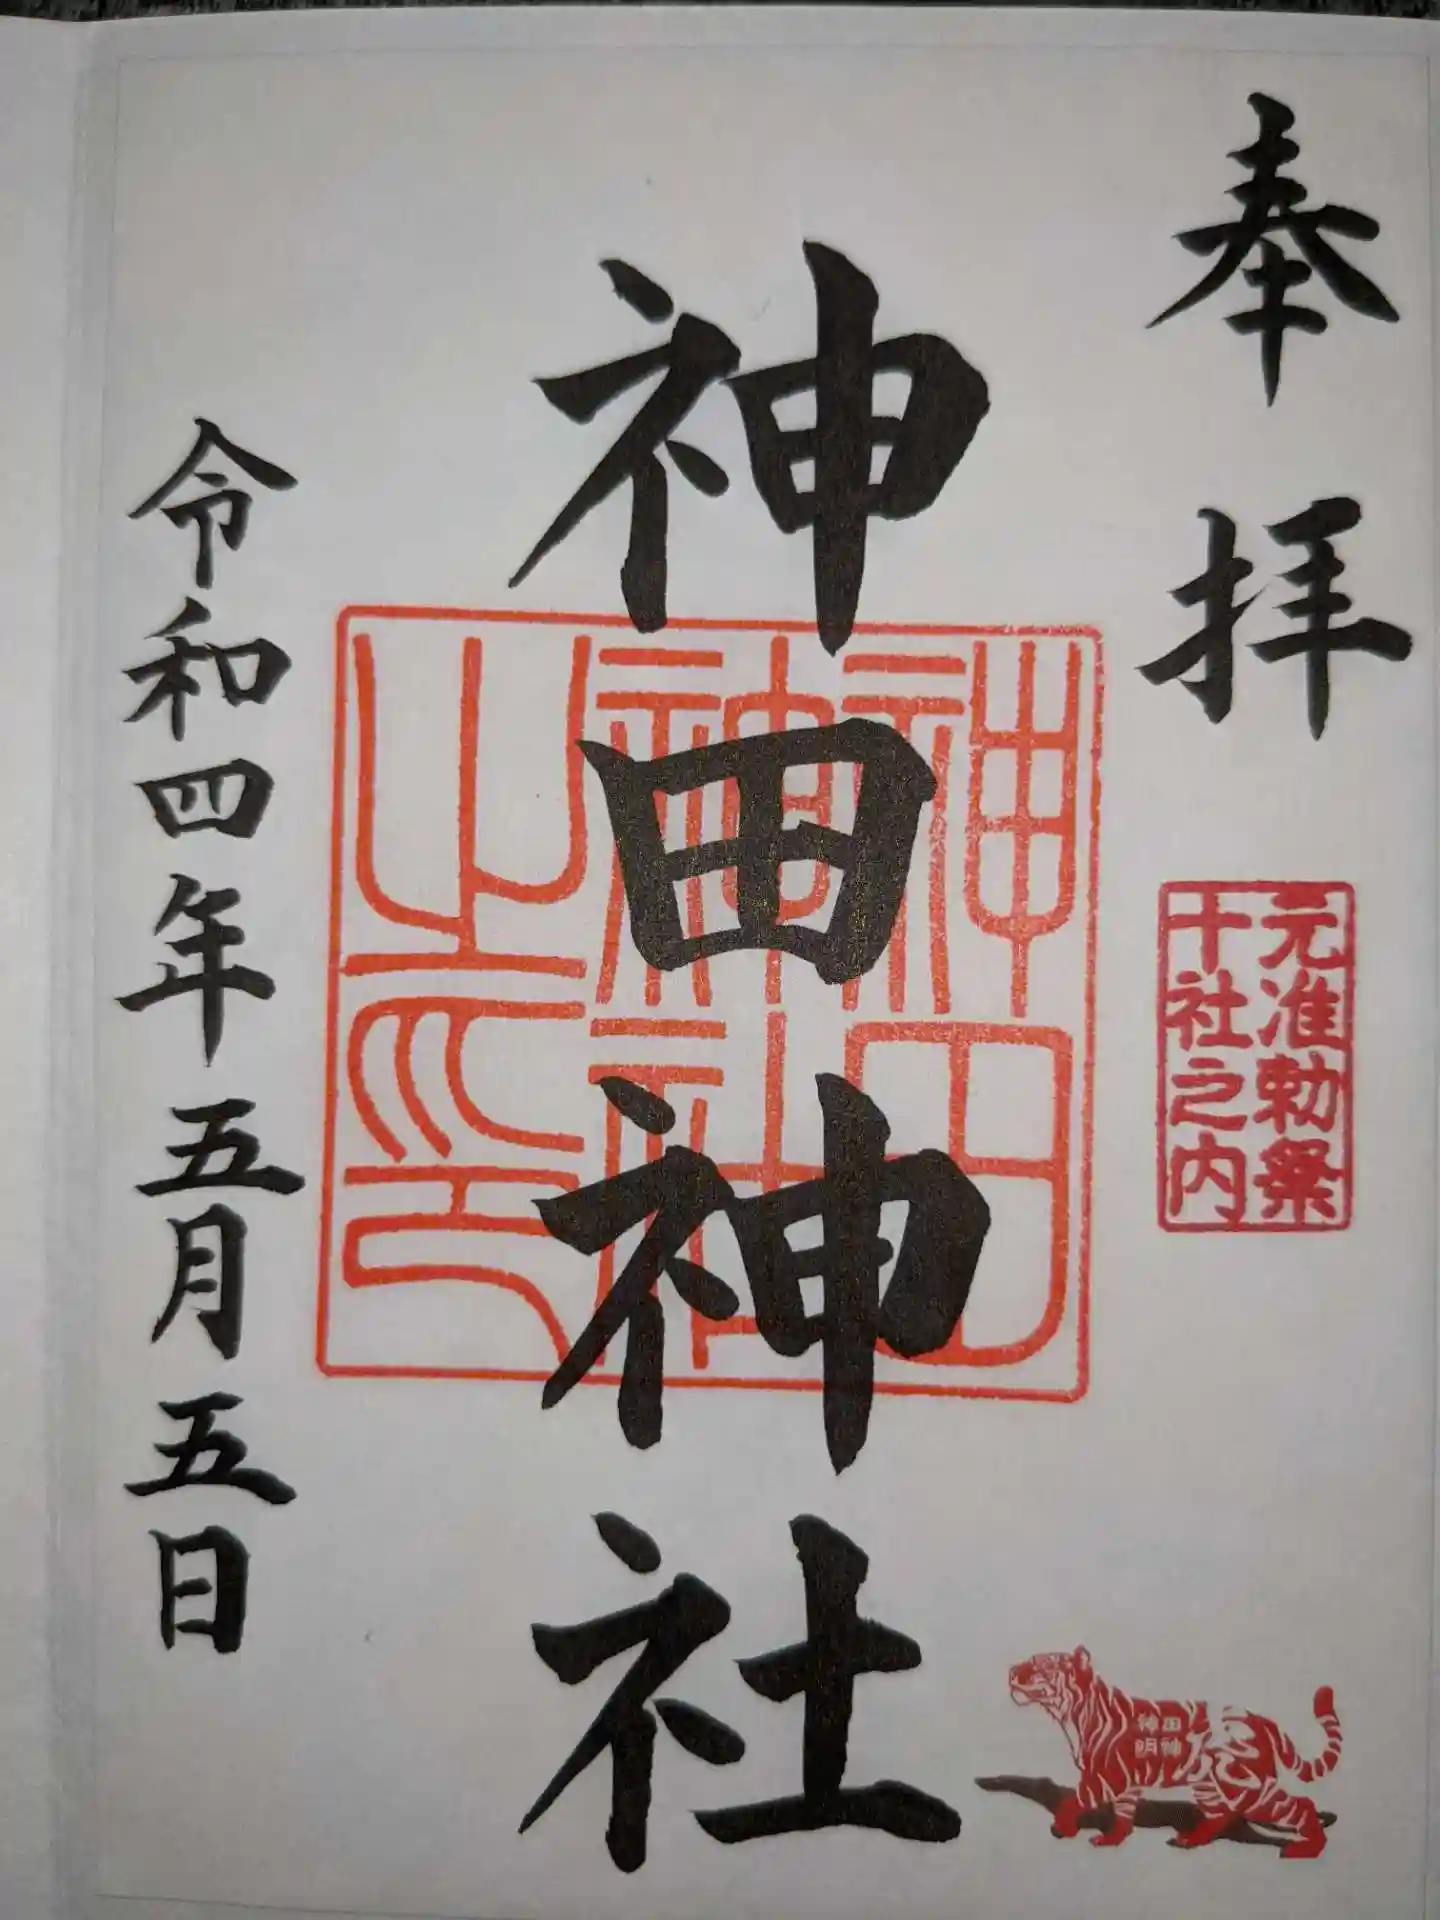 奉拝
元准勅祭
十社之内
神田神社
神田
神社
神社
之印
令和四年五月五日